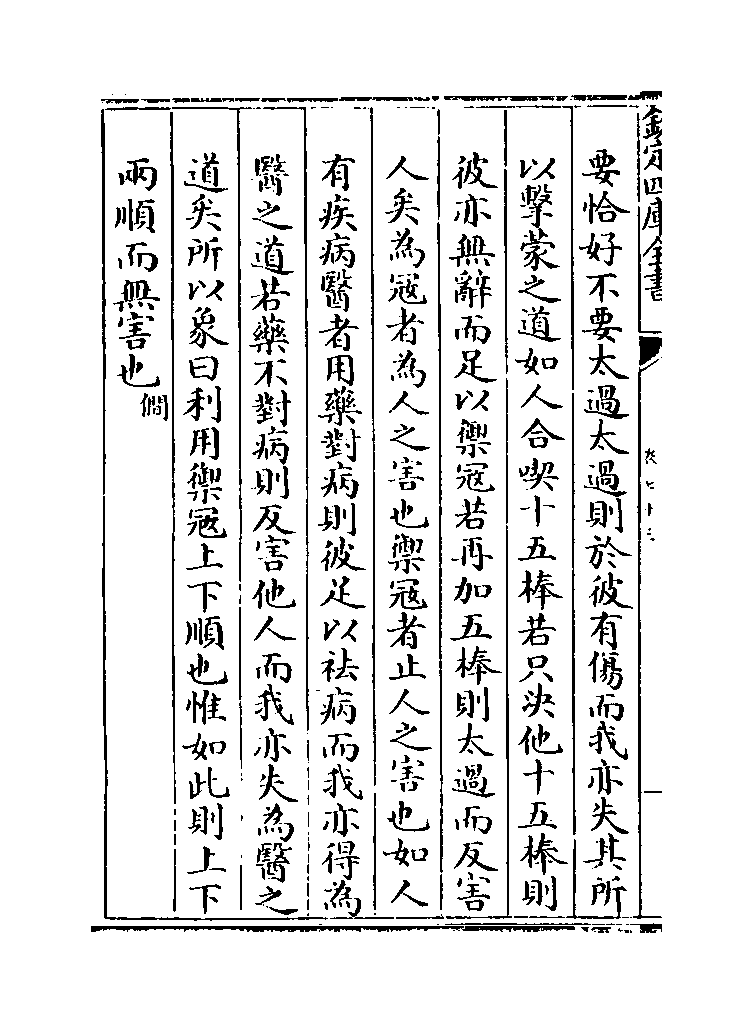 欽定四庫全書
卷七十三
要恰好不要太過太過則於彼有傷而我亦失其所
以擊蒙之道如人合喫十五棒若只決他十五棒則
彼亦無辭而足以禦寇若再加五棒則太過而反害
人矣為寇者為人之害也禦寇者止人之害也如人
有疾病醫者用藥對病則彼足以祛病而我亦得為
醫之道若藥不對病則反害他人而我亦失為醫之
道矣所以象曰利用禦寇上下順也惟如此則上下
兩順而無害也㒓